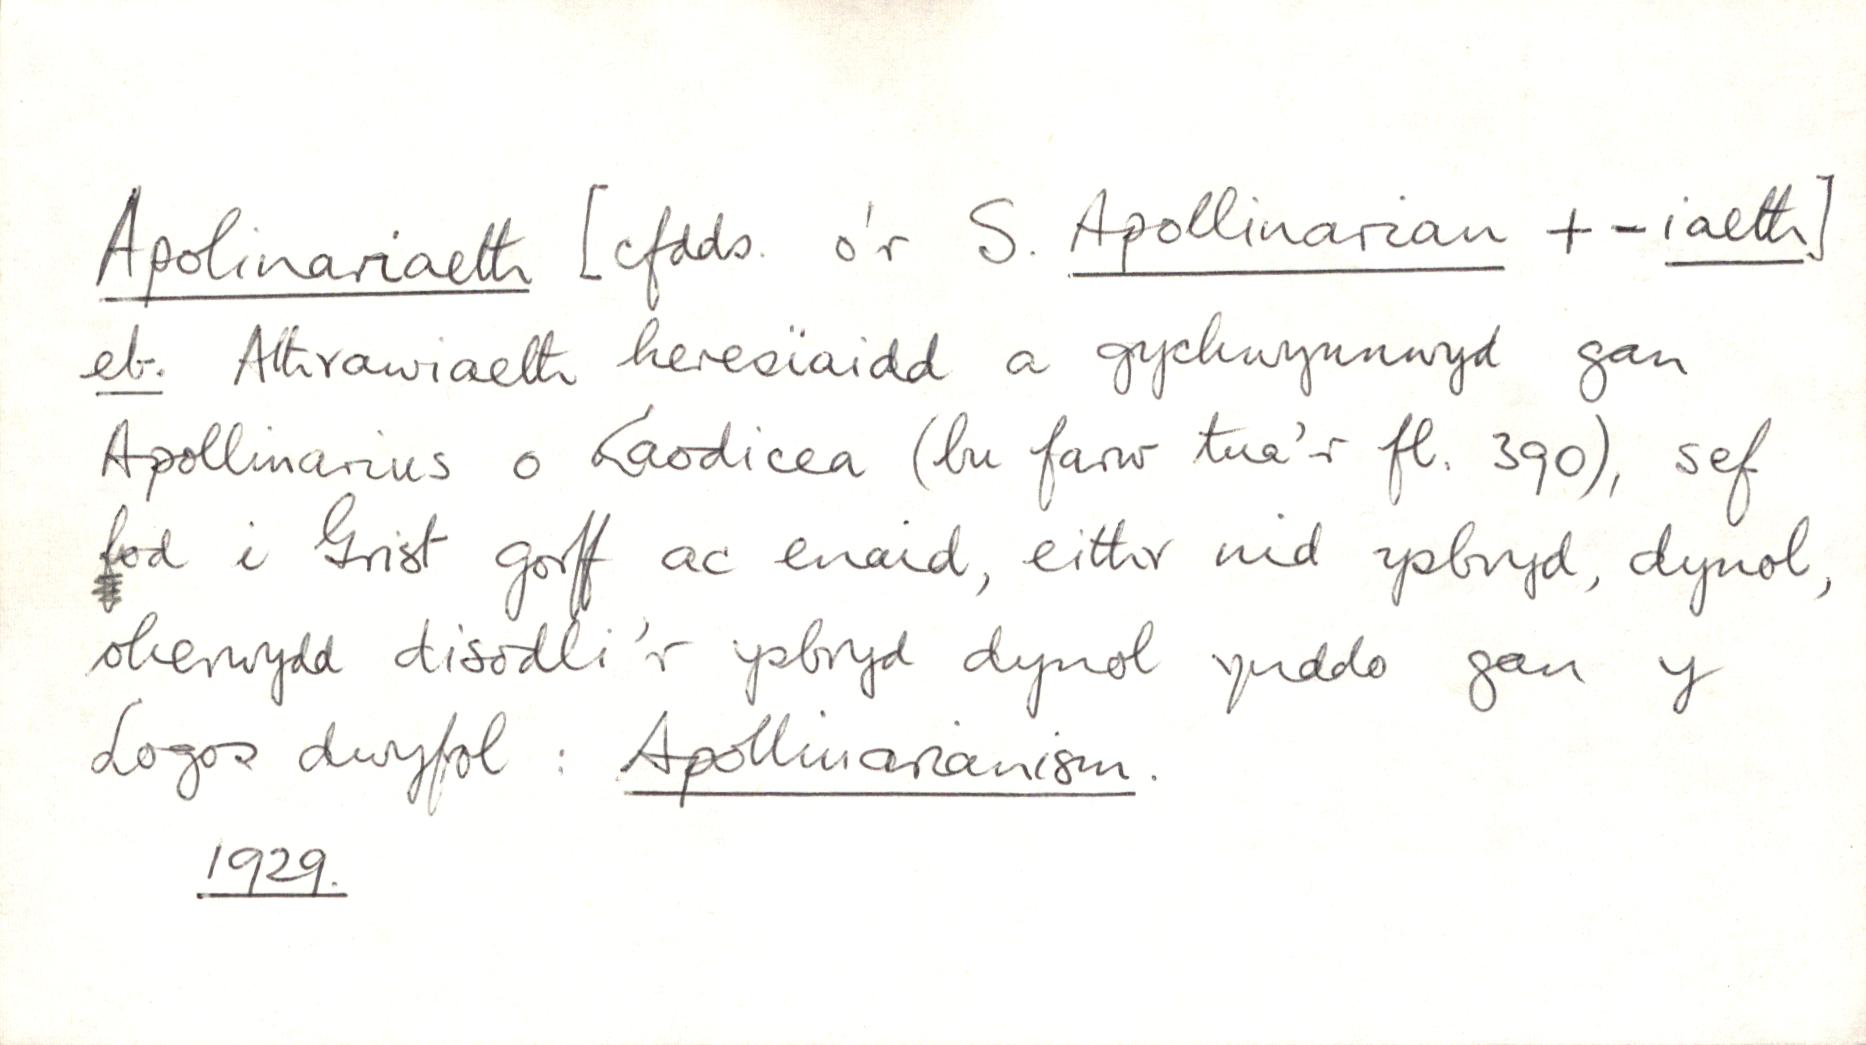 Apolinariaeth [cfdds. o'r S. Apollinarian + -iaeth]
eb. Athrawiaeth heresïaidd a gychwynnwyd gan
Apollinarius o Laodicea (bu farw tua'r fl. 390), sef
fod i Grist gorff ac enaid, eithr nid ysbryd, dynol,
oherwydd disodli'r ysbryd dynol ynddo gan y
Logos dwyfol : Apollinarianism.
1929.